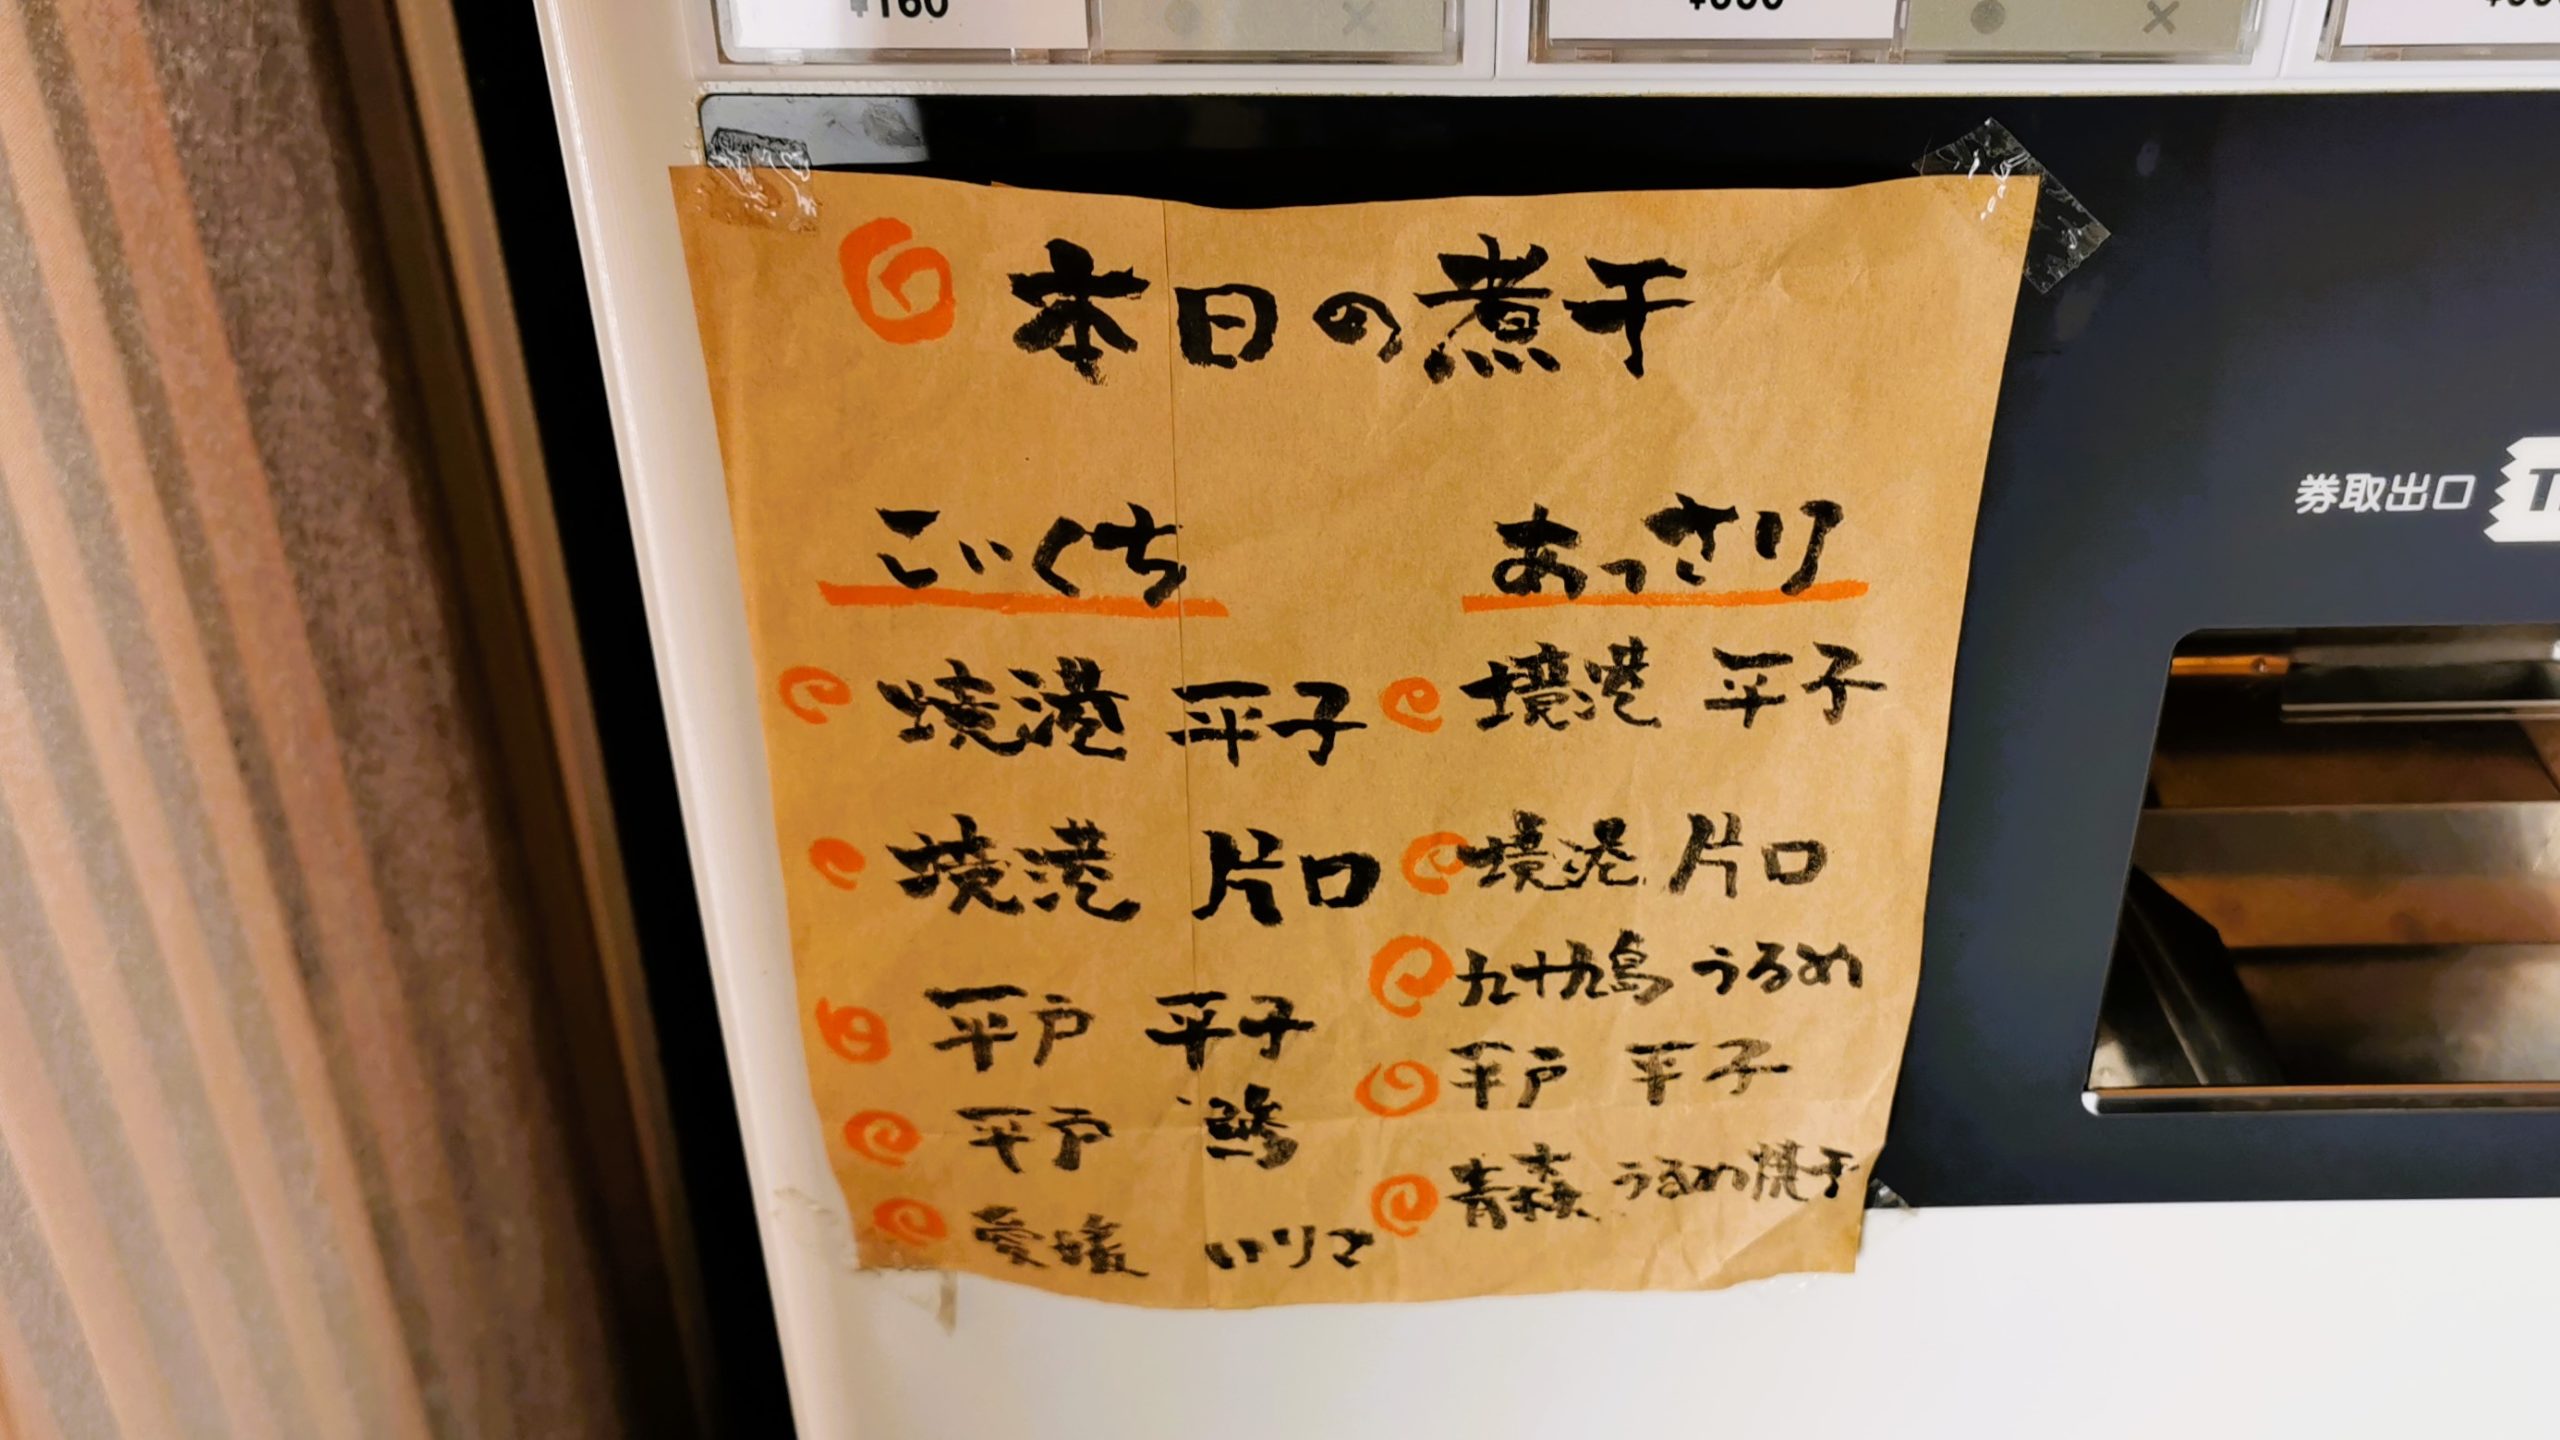 ¥160
本日の煮干
こいくち
境港 平子
境港 片口
平戸 平子
平戸 鯵
愛媛 いりこ
あっさり
境港 平子
境港 片口
九十九島 うるめ
平戸 平子
青森 うるめ焼干
券取出口